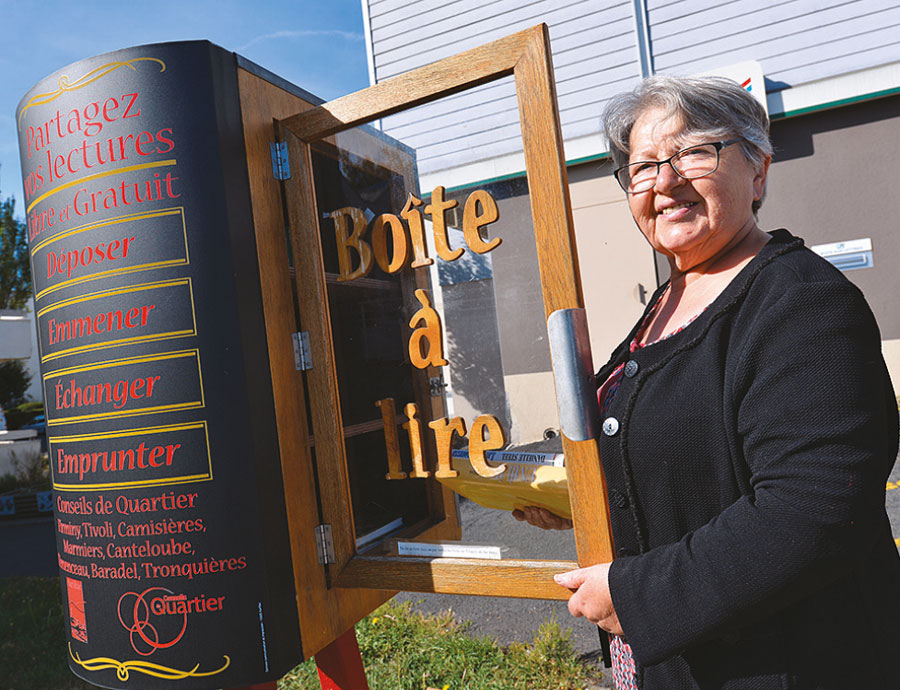 Partagez
vos lectures
Libre et Gratuit
Déposer
Emmener
Échanger
Emprunter
Conseils de Quartier
Firminy, Tivoli, Camisières,
Marmiers, Canteloube,
Baradel, Tronquières
Conseils
Quartier
Boîte
à
lire
DANIELLE STEEL